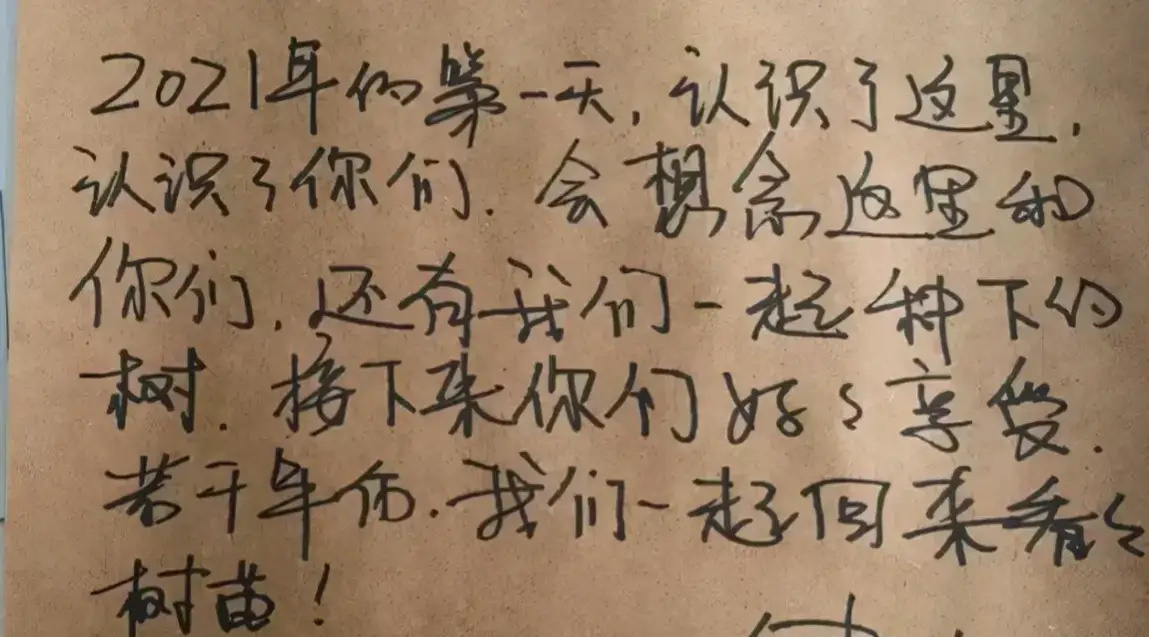 2021年的第一天,认识了这里,
认识了你们.会想念这里和
你们.还有我们一起种下的
树.接下来你们好好享受.
若干年后.我们一起回来看看
树苗!